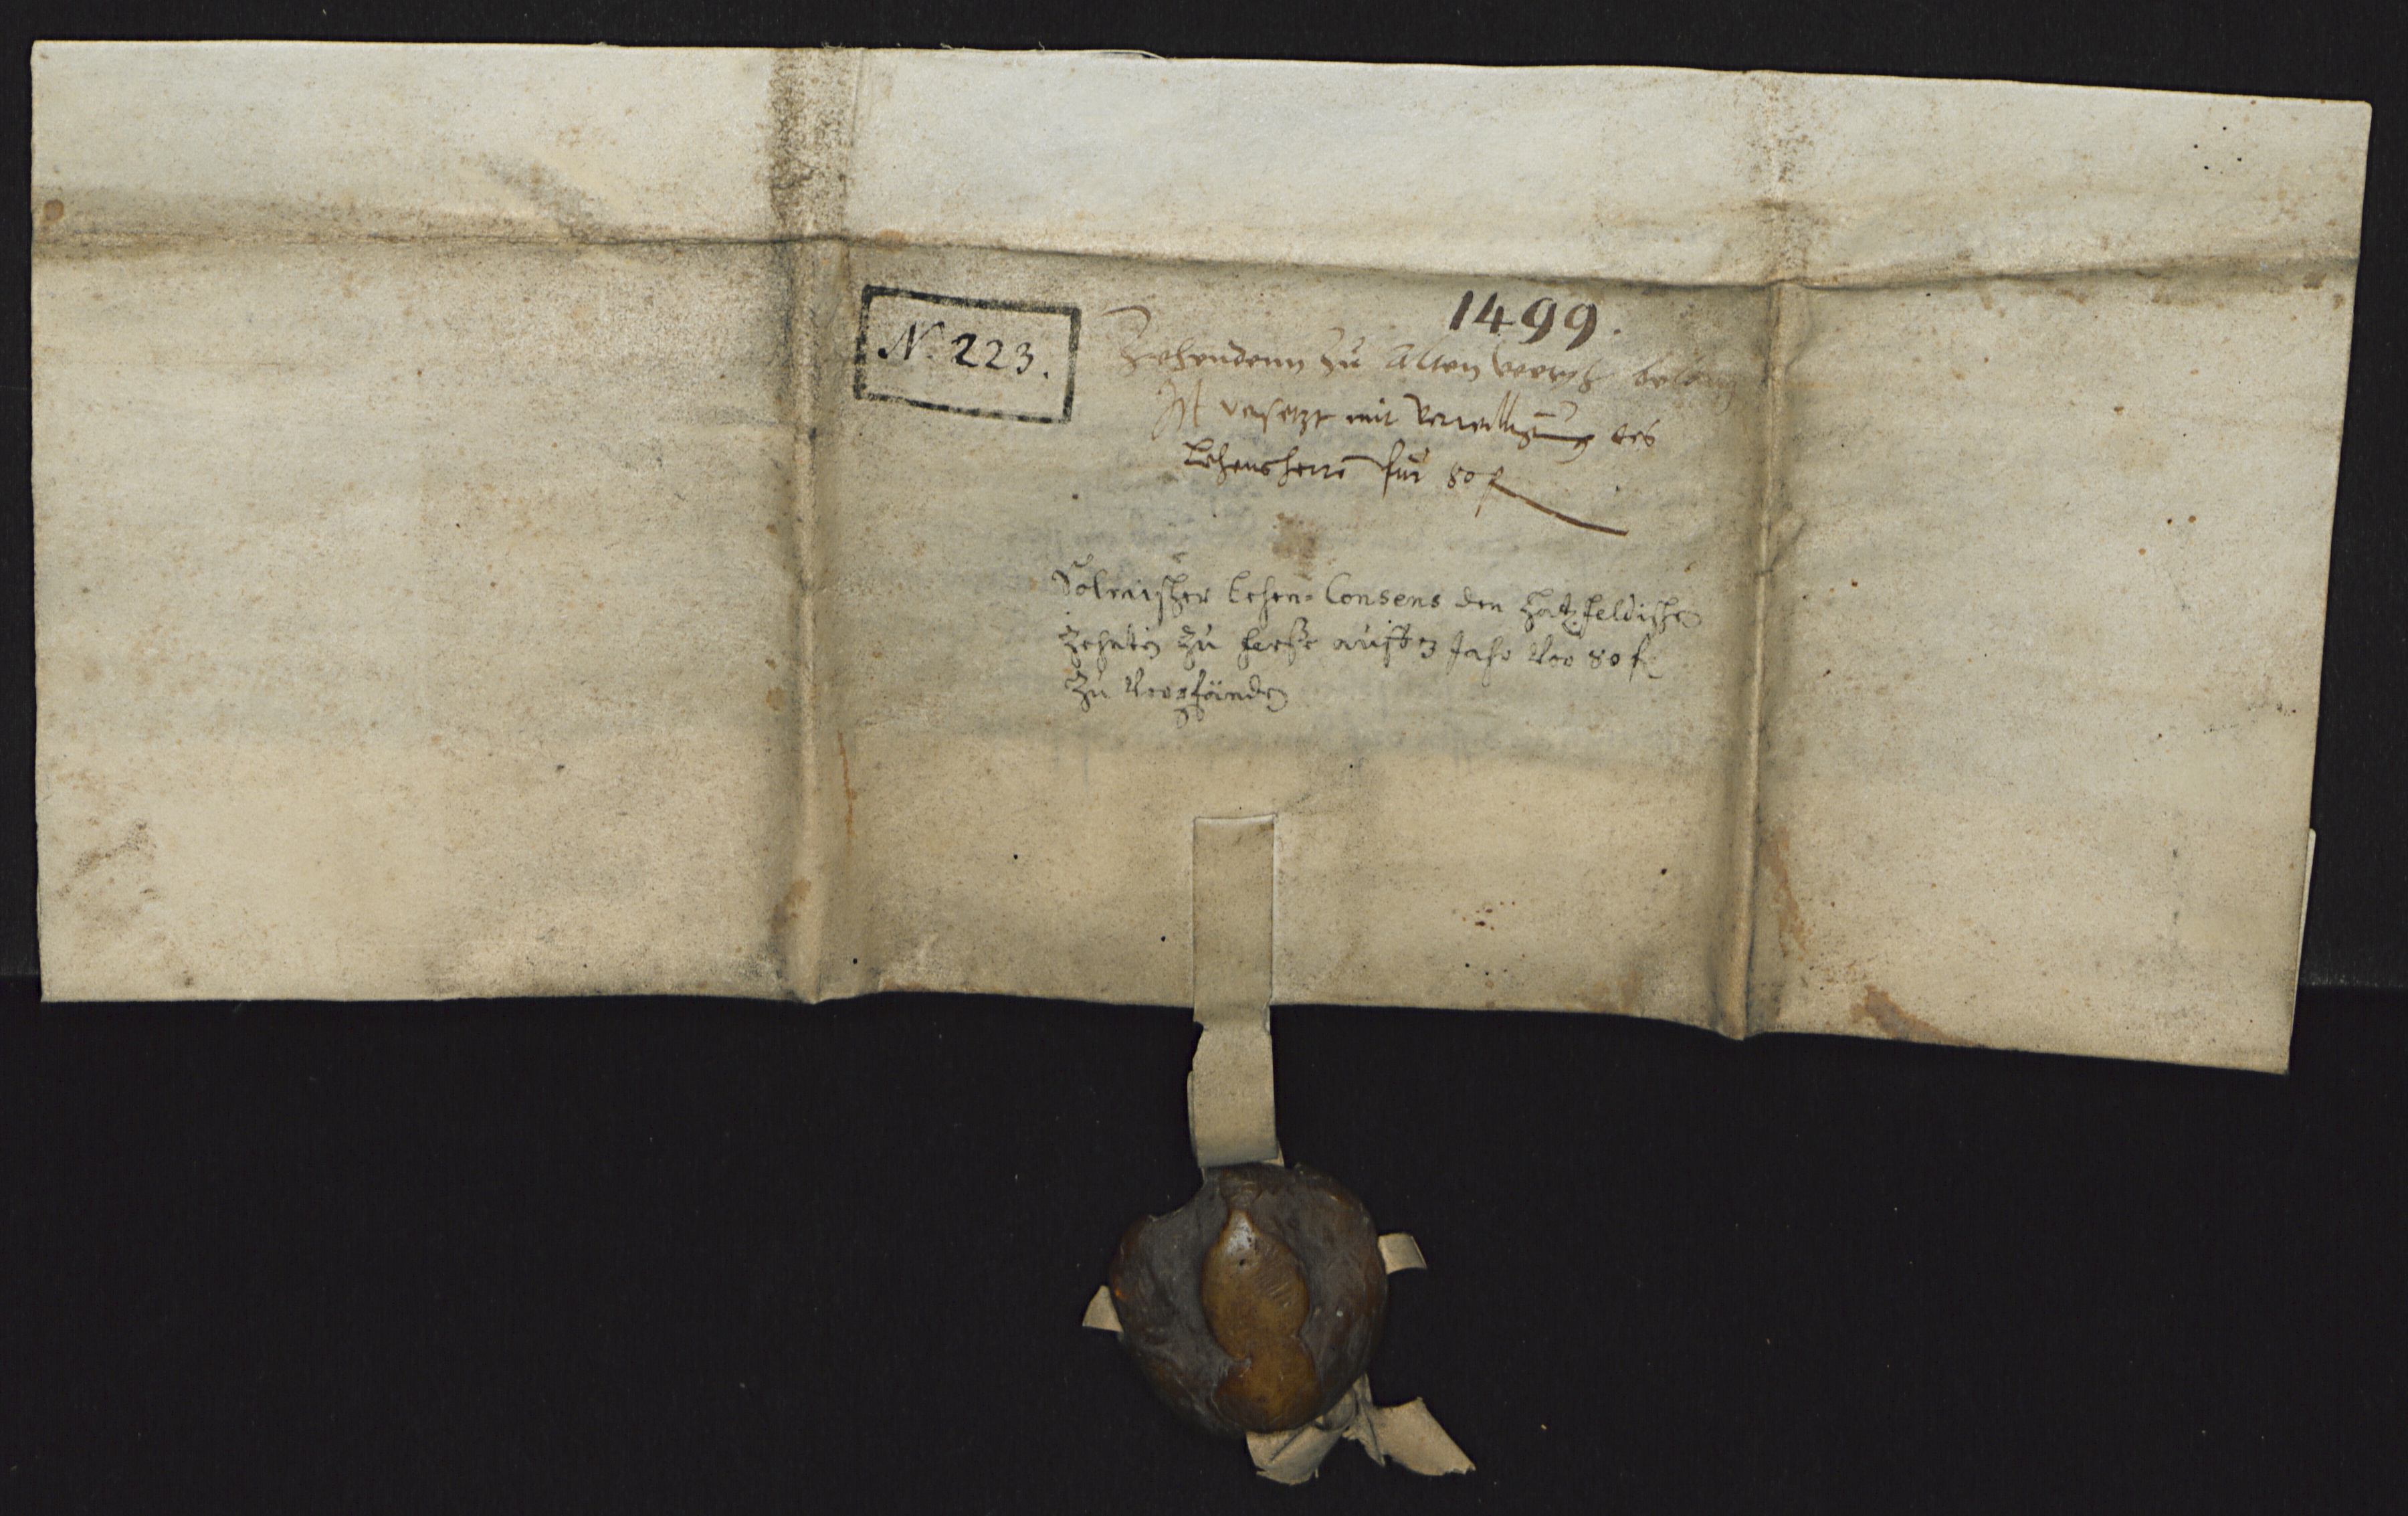 1499.
N. 223.
Zehendenn zu Alten
Ist versetzt mit verwilligung des
Lehensherrn fur 80 f
Solmischer Lehen-Consens den Hatzfeldischen
Zehnten zu auff 3 Jahr vor 80 f
zu verpfänden